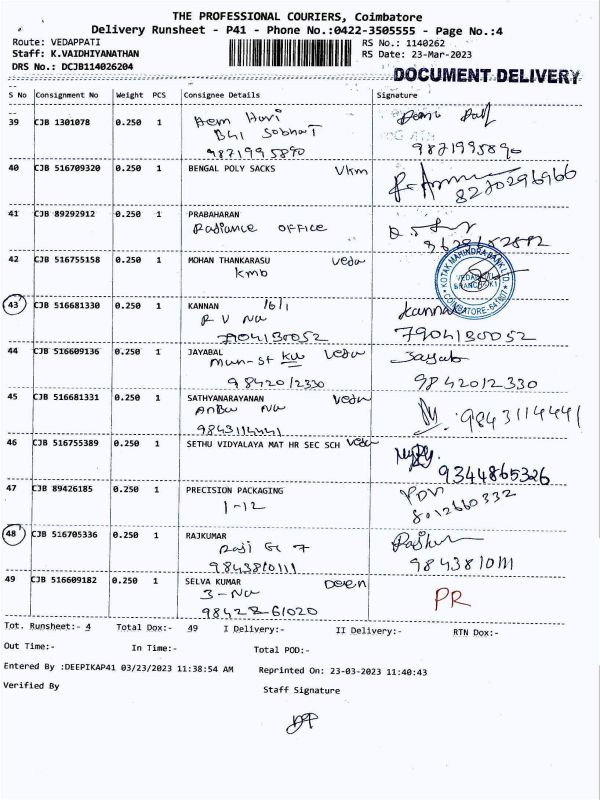 THE PROFESSIONAL COURIERS, Coimbatore
Delivery Runsheet - P41 - Phone No.:0422-3505555 - Page No.:4
Route: VEDAPPATI RS No.: 1140262
Staff: K.VAIDHIYANATHAN RS Date: 23-Mar-2023
DRS No.: DCJB114026204
DOCUMENT DELIVERY
S No Consignment No Weight PCS Consignee Details Signature
39 CJB 1301078 0.250 1 Hari
9871995890 9871995890
40 CJB 516709320 0.250 1 BENGAL POLY SACKS Vkm
8270296966
41 CJB 89292912 0.250 1 PRABAHARAN
Radiance OFFICE
42 CJB 516755158 0.250 1 MOHAN THANKARASU Veda
kmb
KOTAK MAHINDRA BANK LTD. COIMBATORE-641007
43 CJB 516681330 0.250 1 KANNAN 16/1 Kannan
R V Na
7904130052 7904130052
44 CJB 516609136 0.250 1 JAYABAL Veda Jayab
Mun-St
9842012330 9842012330
45 CJB 516681331 0.250 1 SATHYANARAYANAN Veda
Anbu Na 9843114441
9843114441
46 CJB 516755389 0.250 1 SETHU VIDYALAYA MAT HR SEC SCH Veda
9344865326
47 CJB 89426185 0.250 1 PRECISION PACKAGING
1-12 8012660332
48 CJB 516705336 0.250 1 RAJKUMAR
9843810111 9843810111
49 CJB 516609182 0.250 1 SELVA KUMAR Deen
3-Na PR
9842861020
Tot. Runsheet:- 4 Total Dox:- 49 I Delivery:- II Delivery:- RTN Dox:-
Out Time:- In Time:- Total POD:-
Entered By :DEEPIKAP41 03/23/2023 11:38:54 AM Reprinted On: 23-03-2023 11:40:43
Verified By Staff Signature